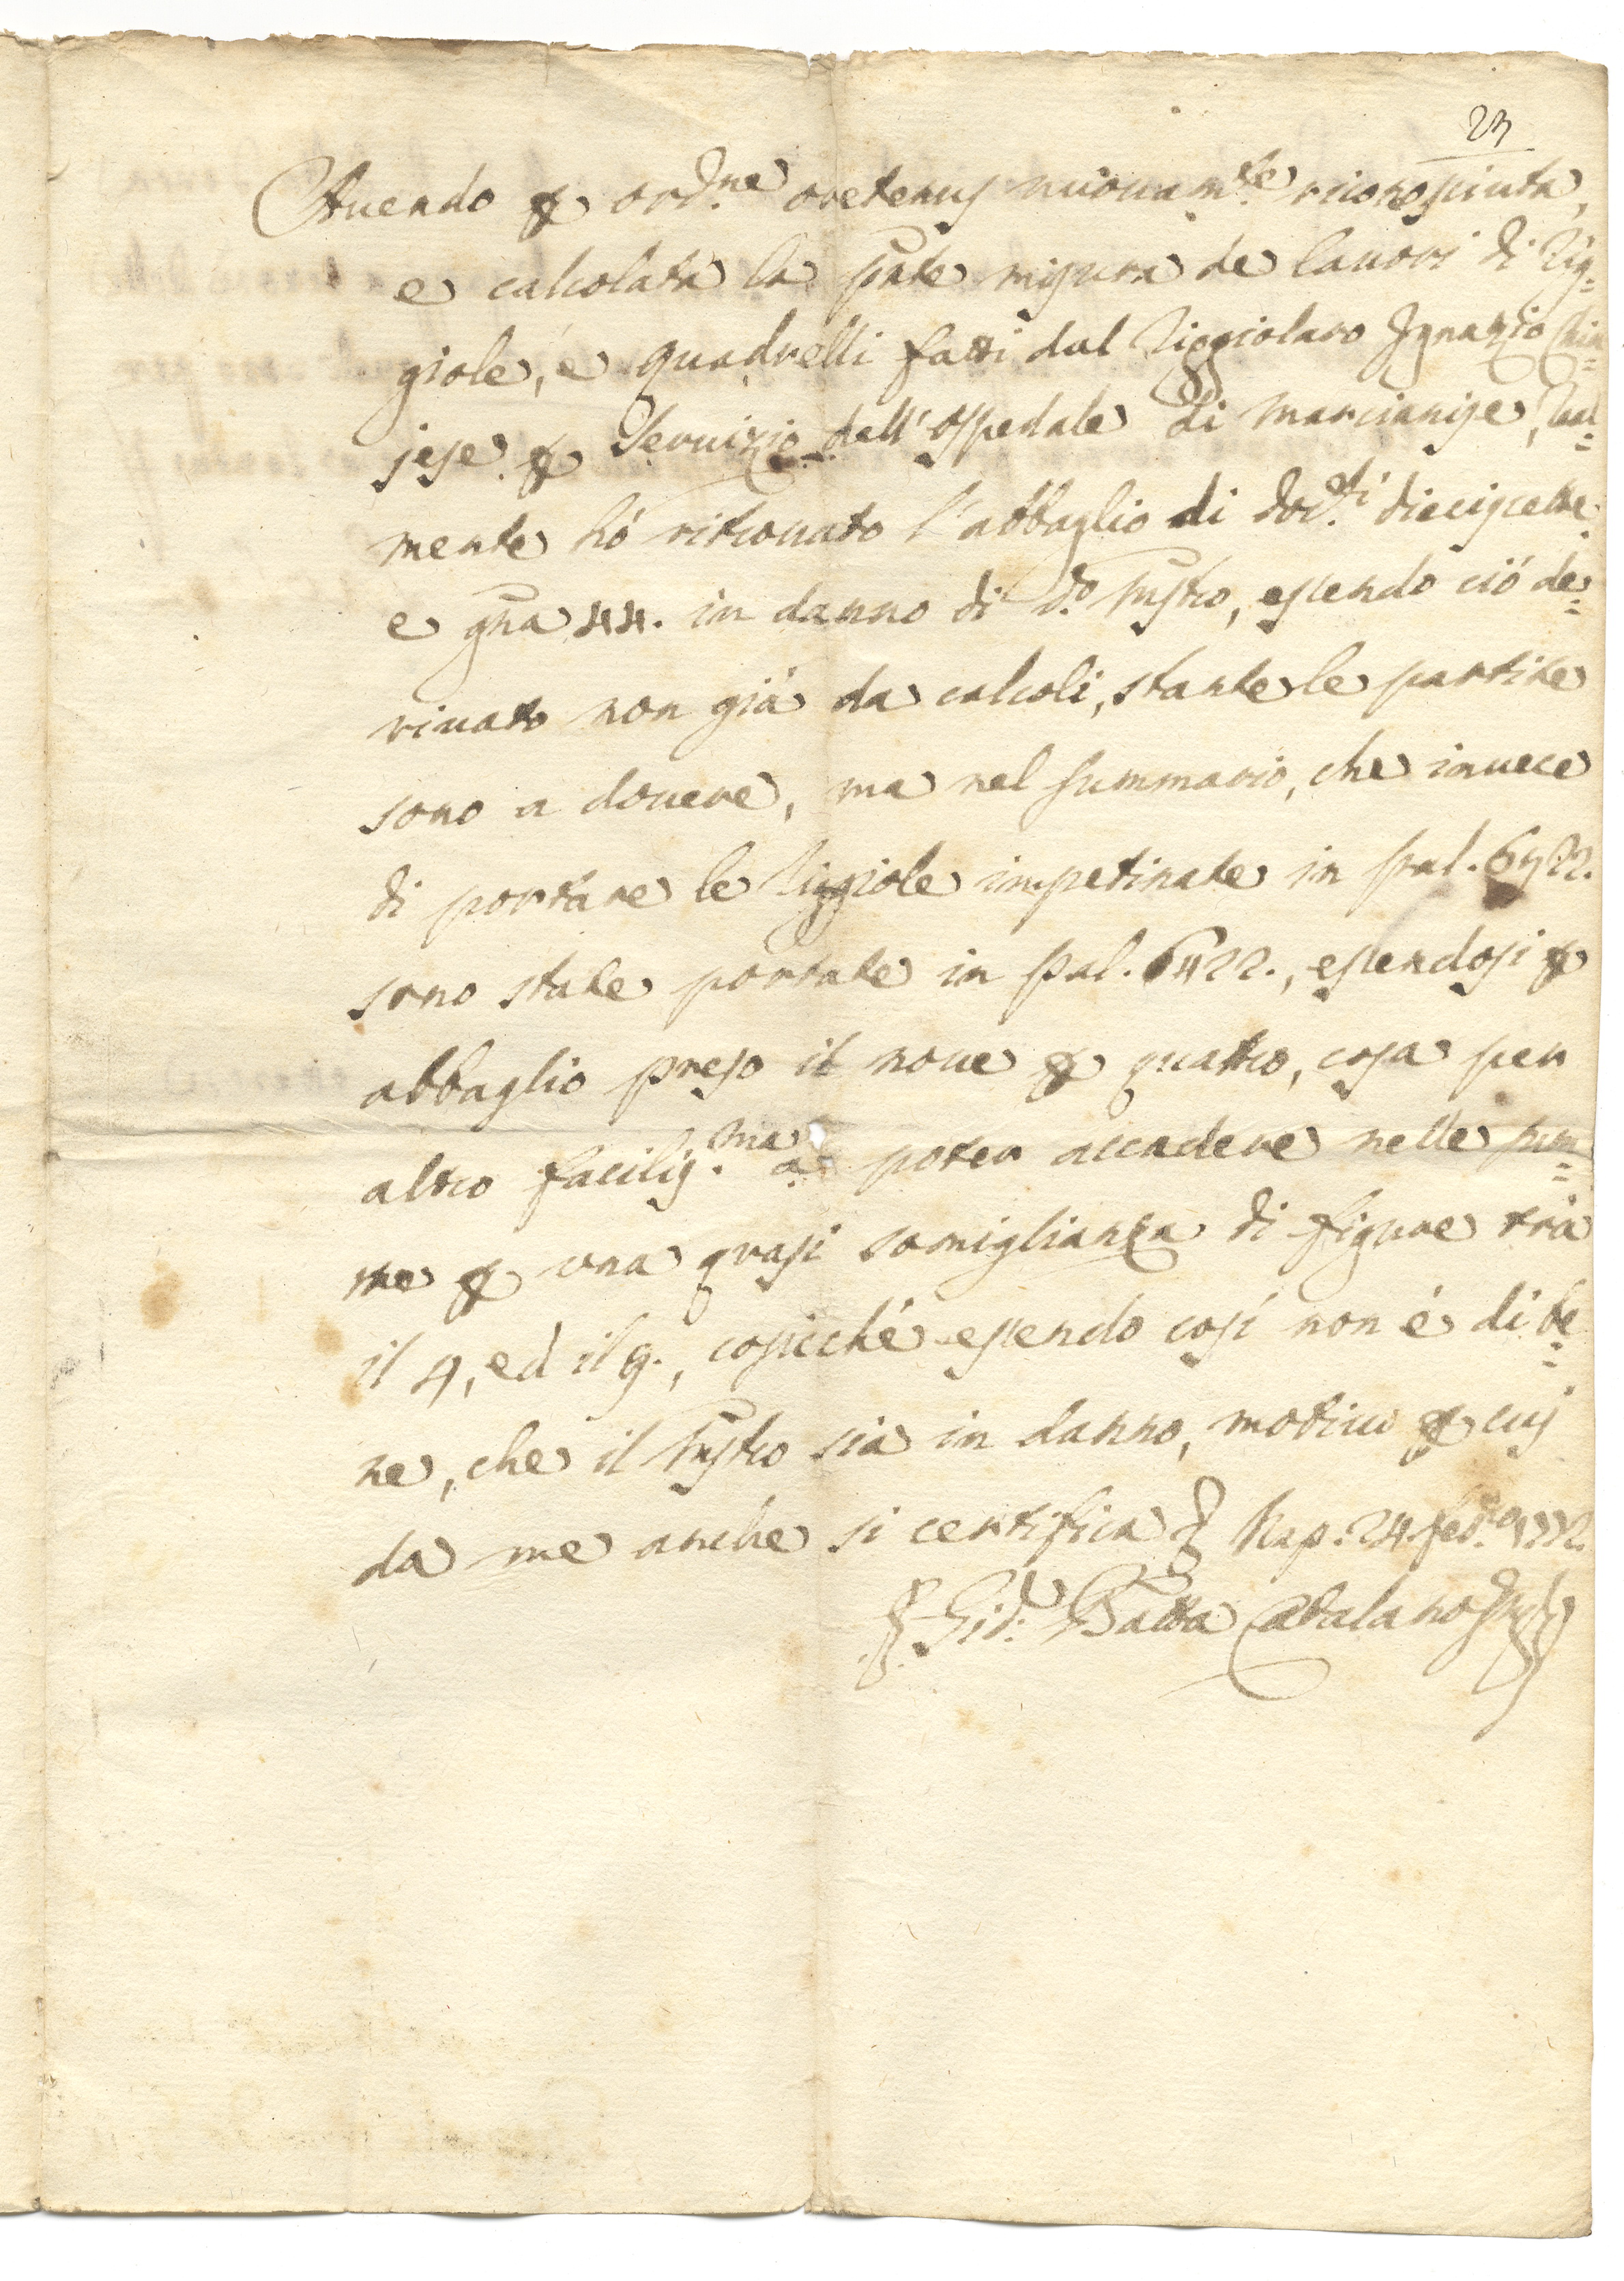 23
Avendo p ord.ne oretenus nuovam.te riconosciuta,
e calcolata la pnte misura de lavori di Rig=
giole, e quadrelli fatti dal Riggiolaro Ignazio Chia=
jese p servizio dell'Ospedale di Marcianise, real=
mente hó ritrovato l'abbaglio di doc.ti diecisette
e gna 44. in danno di d.o Mstro, essendo ció de=
rivato non giá da calcoli, stante le partite
sono a dovere, ma nel summario, che invece
di portare le Riggiole impetinate in pal. 6922.
sono state portate in pal. 6422., essendosi p
abbaglio preso il nove p quattro, cosa per
altro faciliss.ma a poter accadere nelle som=
me p una quasi somiglianza di figure trá
il 4, ed il 9., cosicché essendo cosí non é di be=
ne, che il Mstro sia in danno, motivo p cui
da me anche si certifica Nap. 24. feb.ro 1772.
Gio: Batta Catalano